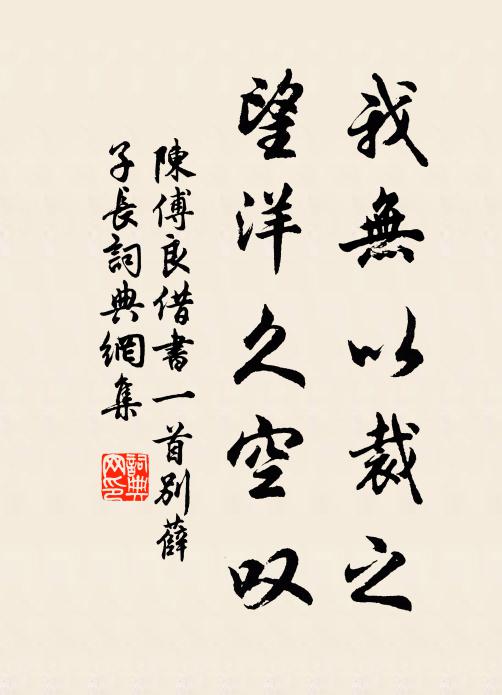 我無以裁之
望洋久空叹
陳傅良借書一首别薛
子長詞典網集
詞典网印